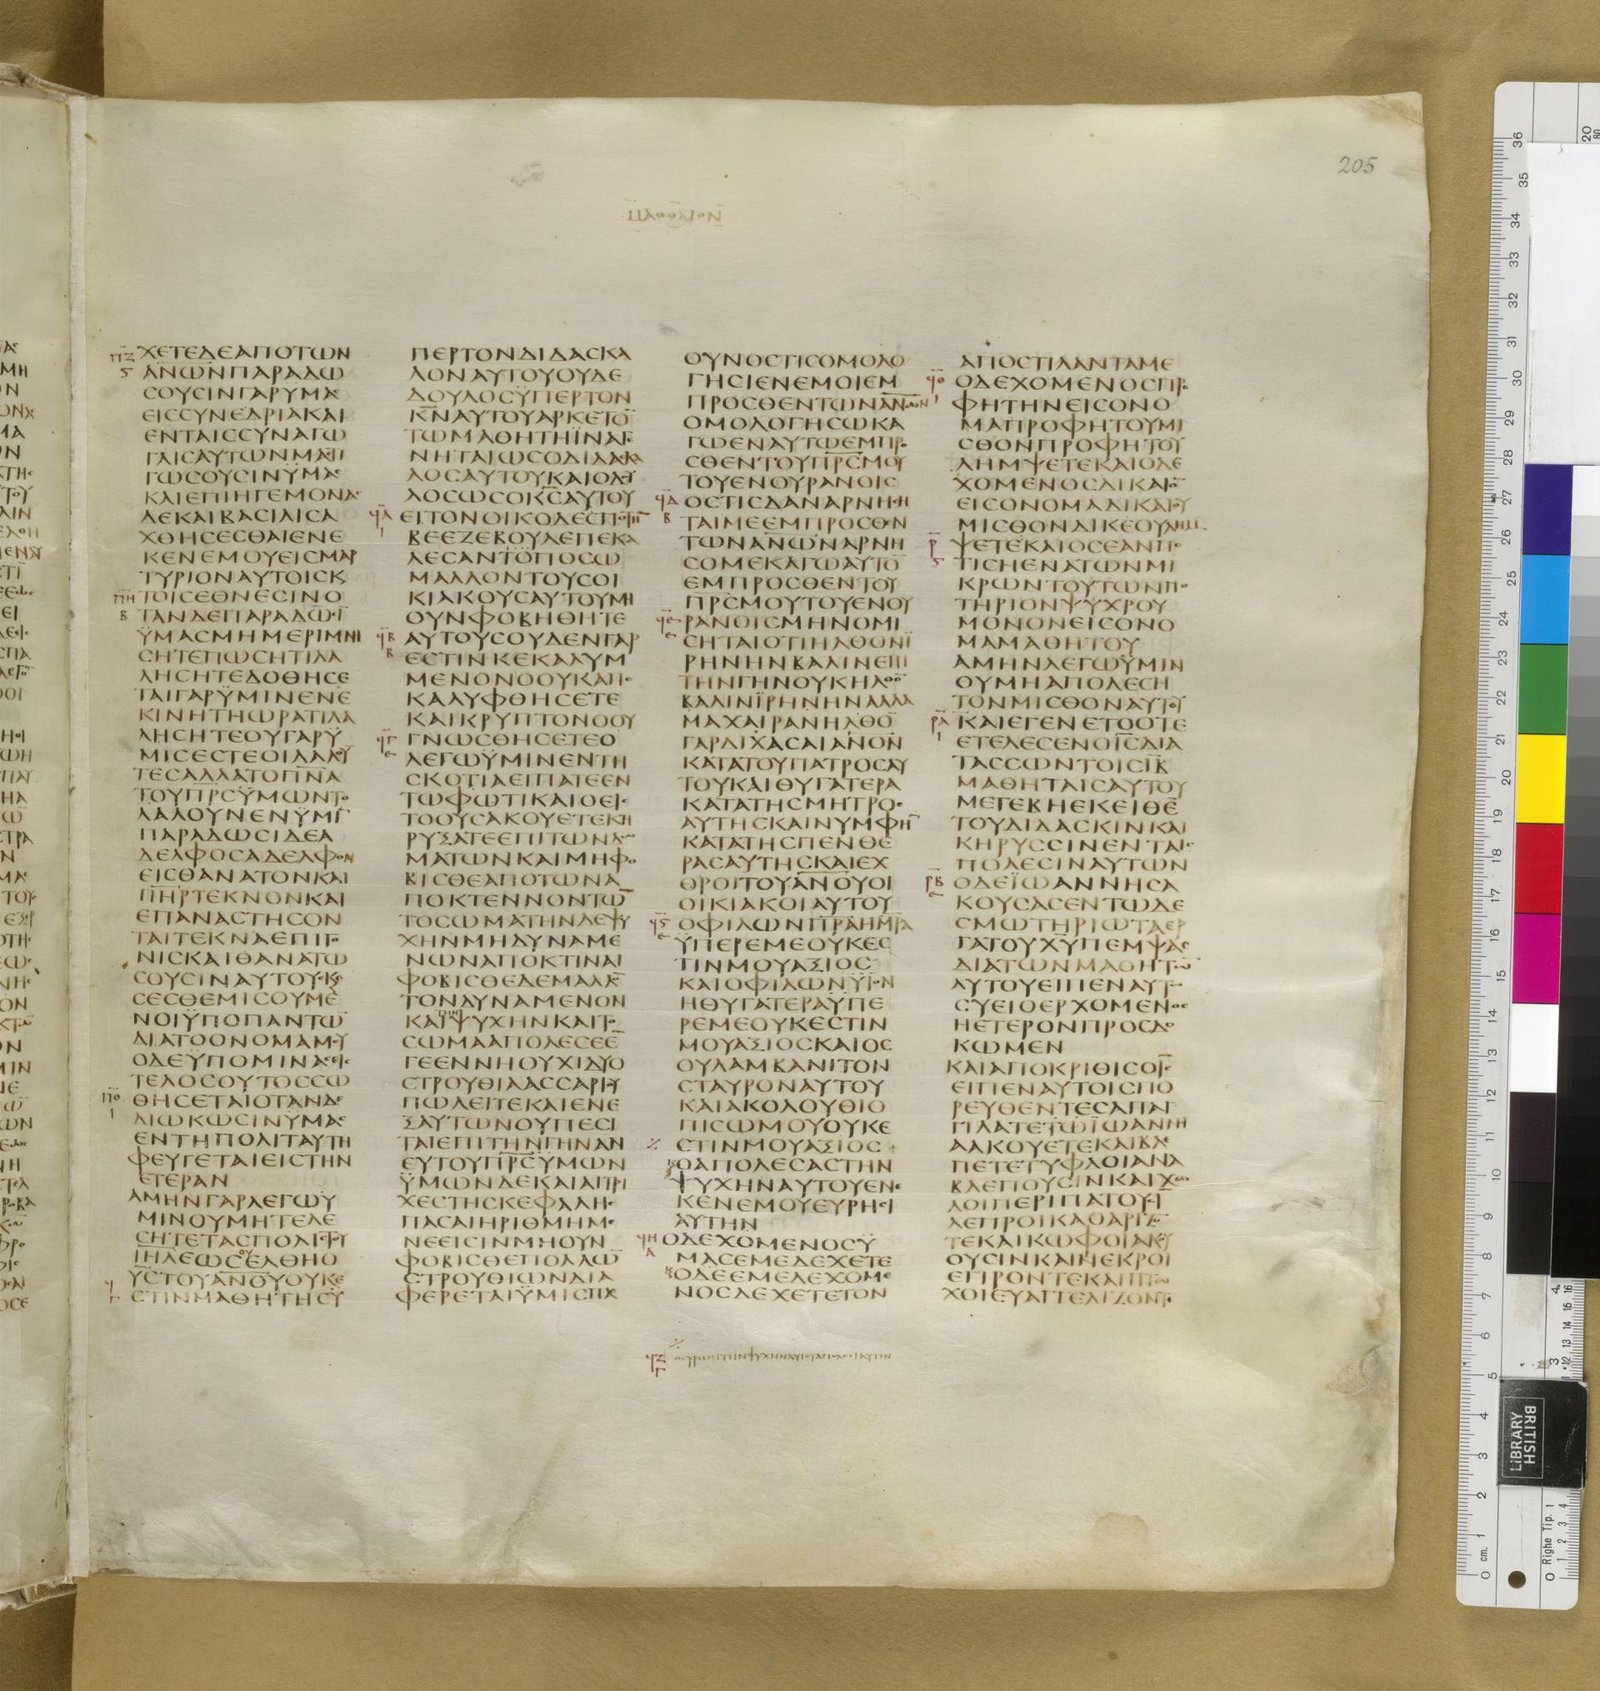 205
ΧΕΤΕΔΕΑΠΟΤΩΝ
ΑΝΩΝΠΑΡΑΔΩ
ΣΟΥΣΙΝΓΑΡΥΜΑ
ΕΙΣΣΥΝΕΔΡΙΑΚΑΙ
ΕΝΤΑΙΣΣΥΝΑΓΩ
ΓΑΙΣΑΥΤΩΝΜΑΣΤΙ
ΓΩΣΟΥΣΙΝΫΜΑΣ
ΚΑΙΕΠΙΗΓΕΜΟΝΑΣ
ΔΕΚΑΙΒΑΣΙΛΙΣΑ
ΧΘΗΣΕΣΘΑΙΕΝΕ
ΚΕΝΕΜΟΥΕΙΣΜΑΡ
ΤΥΡΙΟΝΑΥΤΟΙΣΚ
ΤΟΙΣΕΘΝΕΣΙΝΟ
ΤΑΝΔΕΠΑΡΑΔΩΣΙ
ΫΜΑΣΜΗΜΕΡΙΜΝΗ
ΣΗΤΕΠΩΣΗΤΙΛΑ
ΛΗΣΗΤΕΔΟΘΗΣΕ
ΤΑΙΓΑΡΫΜΙΝΕΝΕ
ΚΙΝΗΤΗΩΡΑΤΙΛΑ
ΛΗΣΗΤΕΟΥΓΑΡΫ
ΜΙΣΕΣΤΕΟΙΛΑΛΟΥ
ΤΕΣΑΛΛΑΤΟΠΝΑ
ΤΟΥΠΡΣΫΜΩΝΤΟ
ΛΑΛΟΥΝΕΝΫΜΙ
ΠΑΡΑΔΩΣΙΔΕΑ
ΔΕΛΦΟΣΑΔΕΛΦΟΝ
ΕΙΣΘΑΝΑΤΟΝΚΑΙ
ΠΗΡΤΕΚΝΟΝΚΑΙ
ΕΠΑΝΑΣΤΗΣΟΝ
ΤΑΙΤΕΚΝΑΕΠΙΓΟ
ΝΙΣΚΑΙΘΑΝΑΤΩ
ΣΟΥΣΙΝΑΥΤΟΥΣΚΕ
ΣΕΣΘΕΜΙΣΟΥΜΕ
ΝΟΙΫΠΟΠΑΝΤΩ
ΔΙΑΤΟΟΝΟΜΑΜΟΥ
ΟΔΕΫΠΟΜΙΝΑΣΕΙΣ
ΤΕΛΟΣΟΥΤΟΣΣΩ
ΘΗΣΕΤΑΙΟΤΑΝΔΕ
ΔΙΩΚΩΣΙΝΫΜΑΣ
ΕΝΤΗΠΟΛΙΤΑΥΤΗ
ΦΕΥΓΕΤΑΙΕΙΣΤΗΝ
ΕΤΕΡΑΝ
ΑΜΗΝΓΑΡΛΕΓΩΫ
ΜΙΝΟΥΜΗΤΕΛΕ
ΣΗΤΕΤΑΣΠΟΛΙΣΤΟΥ
ΙΗΛΕΩΣΟΥΕΛΘΗΟ
ΥΣΤΟΥΑΝΟΥΟΥΚΕ
ΣΤΙΝΜΑΘΗΤΗΣΫ
ΠΕΡΤΟΝΔΙΔΑΣΚΑ
ΛΟΝΑΥΤΟΥΟΥΔΕ
ΔΟΥΛΟΣΫΠΕΡΤΟΝ
ΚΝΑΥΤΟΥΑΡΚΕΤΟΝ
ΤΩΜΑΘΗΤΗΪΝΑΓΕ
ΝΗΤΑΙΩΣΟΔΙΔΑΣΚΑ
ΛΟΣΑΥΤΟΥΚΑΙΟΔΟΥ
ΛΟΣΩΣΟΚΣΑΥΤΟΥ
ΕΙΤΟΝΟΙΚΟΔΕΣΠΟΤΗ
ΒΕΕΖΕΒΟΥΛΕΠΕΚΑ
ΛΕΣΑΝΤΟΠΟΣΩ
ΜΑΛΛΟΝΤΟΥΣΟΙ
ΚΙΑΚΟΥΣΑΥΤΟΥΜΙ
ΟΥΝΦΟΒΗΘΗΤΕ
ΑΥΤΟΥΣΟΥΔΕΝΓΑΡ
ΕΣΤΙΝΚΕΚΑΛΥΜ
ΜΕΝΟΝΟΟΥΚΑΠΟ
ΚΑΛΥΦΘΗΣΕΤΕ
ΚΑΙΚΡΥΠΤΟΝΟΟΥ
ΓΝΩΣΘΗΣΕΤΕΟ
ΛΕΓΩΫΜΙΝΕΝΤΗ
ΣΚΟΤΙΑΕΙΠΑΤΕΕΝ
ΤΩΦΩΤΙΚΑΙΟΕΙΣ
ΤΟΟΥΣΑΚΟΥΕΤΕΚΗ
ΡΥΞΑΤΕΕΠΙΤΩΝΔΩ
ΜΑΤΩΝΚΑΙΜΗΦΟ
ΒΙΣΘΕΑΠΟΤΩΝΑ
ΠΟΚΤΕΝΝΟΝΤΩ
ΤΟΣΩΜΑΤΗΝΔΕΨΥ
ΧΗΝΜΗΔΥΝΑΜΕ
ΝΩΝΑΠΟΚΤΙΝΑΙ
ΦΟΒΙΣΘΕΔΕΜΑΛΛΟ
ΤΟΝΔΥΝΑΜΕΝΟΝ
ΚΑΙΨΥΧΗΝΚΑΙΤΟ
ΣΩΜΑΑΠΟΛΕΣΕΕ
ΓΕΕΝΝΗΟΥΧΙΔΥΟ
ΣΤΡΟΥΘΙΑΑΣΣΑΡΙΟΥ
ΠΩΛΕΙΤΕΚΑΙΕΝΕ
ΞΑΥΤΩΝΟΥΠΕΣΙ
ΤΑΙΕΠΙΤΗΝΓΗΝΑΝ
ΕΥΤΟΥΠΡΣΫΜΩΝ
ΫΜΩΝΔΕΚΑΙΑΙΤΡΙ
ΧΕΣΤΗΣΚΕΦΑΛΗΣ
ΠΑΣΑΙΗΡΙΘΜΗΜΕ
ΝΕΕΙΣΙΝΜΗΟΥΝ
ΦΟΒΙΣΘΕΠΟΛΛΩ
ΣΤΡΟΥΘΙΩΝΔΙΑ
ΦΕΡΕΤΑΙΫΜΙΣΠΑΣ
ΟΥΝΟΣΤΙΣΟΜΟΛΟ
ΓΗΣΙΕΝΕΜΟΙΕΜ
ΠΡΟΣΘΕΝΤΩΝΑΝΩΝ
ΟΜΟΛΟΓΗΣΩΚΑ
ΓΩΕΝΑΥΤΩΕΜΠΡΟ
ΣΘΕΝΤΟΥΠΡΣΜΟΥ
ΤΟΥΕΝΟΥΡΑΝΟΙΣ
ΟΣΤΙΣΔΑΝΑΡΝΗΣΗ
ΤΑΙΜΕΕΜΠΡΟΣΘΕΝ
ΤΩΝΑΝΩΝΑΡΝΗ
ΣΟΜΕΚΑΓΩΑΥΤΟ
ΕΜΠΡΟΣΘΕΝΤΟΥ
ΠΡΣΜΟΥΤΟΥΕΝΟΥ
ΡΑΝΟΙΣΜΗΝΟΜΙ
ΣΗΤΑΙΟΤΙΗΛΘΟΝΙ
ΡΗΝΗΝΒΑΛΙΝΕΠΙ
ΤΗΝΓΗΝΟΥΚΗΛΘΟ
ΒΑΛΙΝΪΡΗΝΗΝΑΛΛΑ
ΜΑΧΑΙΡΑΝΗΛΘΟ
ΓΑΡΔΙΧΑΣΑΙΑΝΟΝ
ΚΑΤΑΤΟΥΠΑΤΡΟΣΑΥ
ΤΟΥΚΑΙΘΥΓΑΤΕΡΑ
ΚΑΤΑΤΗΣΜΗΤΡΟΣ
ΑΥΤΗΣΚΑΙΝΥΜΦΗ
ΚΑΤΑΤΗΣΠΕΝΘΕ
ΡΑΣΑΥΤΗΣΚΑΙΕΧ
ΘΡΟΙΤΟΥΑΝΟΥΟΙ
ΟΙΚΙΑΚΟΙΑΥΤΟΥ
ΟΦΙΛΩΝΠΡΑΗΜΡΑ
ΫΠΕΡΕΜΕΟΥΚΕΣ
ΤΙΝΜΟΥΑΞΙΟΣ
ΚΑΙΟΦΙΛΩΝΫΙΟΝ
ΗΘΥΓΑΤΕΡΑΫΠΕ
ΡΕΜΕΟΥΚΕΣΤΙΝ
ΜΟΥΑΞΙΟΣΚΑΙΟΣ
ΟΥΛΑΜΒΑΝΙΤΟΝ
ΣΤΑΥΡΟΝΑΥΤΟΥ
ΚΑΙΑΚΟΛΟΥΘΙΟ
ΠΙΣΩΜΟΥΟΥΚΕ
ΣΤΙΝΜΟΥΑΞΙΟΣ
ΟΑΠΟΛΕΣΑΣΤΗΝ
ΨΥΧΗΝΑΥΤΟΥΕΝΕ
ΚΕΝΕΜΟΥΕΥΡΗΣΙ
ΑΥΤΗΝ
ΟΔΕΧΟΜΕΝΟΣΫ
ΜΑΣΕΜΕΔΕΧΕΤΕ
ΟΔΕΕΜΕΔΕΧΟΜΕ
ΝΟΣΔΕΧΕΤΕΤΟΝ
ΑΠΟΣΤΙΛΑΝΤΑΜΕ
ΟΔΕΧΟΜΕΝΟΣΠΡΟ
ΦΗΤΗΝΕΙΣΟΝΟ
ΜΑΠΡΟΦΗΤΟΥΜΙ
ΣΘΟΝΠΡΟΦΗΤΟΥ
ΛΗΜΨΕΤΕΚΑΙΟΔΕ
ΧΟΜΕΝΟΣΔΙΚΑΙΟ
ΕΙΣΟΝΟΜΑΔΙΚΑΙΟΥ
ΜΙΣΘΟΝΔΙΚΕΟΥΛΗΜ
ΨΕΤΕΚΑΙΟΣΕΑΝΠΟ
ΤΙΣΗΕΝΑΤΩΝΜΙ
ΚΡΩΝΤΟΥΤΩΝΠΟ
ΤΗΡΙΟΝΨΥΧΡΟΥ
ΜΟΝΟΝΕΙΣΟΝΟ
ΜΑΜΑΘΗΤΟΥ
ΑΜΗΝΛΕΓΩΫΜΙΝ
ΟΥΜΗΑΠΟΛΕΣΗ
ΤΟΝΜΙΣΘΟΝΑΥΤΟΥ
ΚΑΙΕΓΕΝΕΤΟΟΤΕ
ΕΤΕΛΕΣΕΝΟΙΣΔΙΑ
ΤΑΣΣΩΝΤΟΙΣΙΒ
ΜΑΘΗΤΑΙΣΑΥΤΟΥ
ΜΕΤΕΒΗΕΚΕΙΘΕ
ΤΟΥΔΙΔΑΣΚΙΝΚΑΙ
ΚΗΡΥΣΣΙΝΕΝΤΑΙΣ
ΠΟΛΕΣΙΝΑΥΤΩΝ
ΟΔΕΪΩΑΝΝΗΣΑ
ΚΟΥΣΑΣΕΝΤΩΔΕ
ΣΜΩΤΗΡΙΩΤΑΕΡ
ΓΑΤΟΥΧΥΠΕΜΨΑΣ
ΔΙΑΤΩΝΜΑΘΗΤΩ
ΑΥΤΟΥΕΙΠΕΝΑΥΤΩ
ΣΥΕΙΟΕΡΧΟΜΕΝΟΣ
ΗΕΤΕΡΟΝΠΡΟΣΔΟ
ΚΩΜΕΝ
ΚΑΙΑΠΟΚΡΙΘΙΣΟΙΣ
ΕΙΠΕΝΑΥΤΟΙΣΠΟ
ΡΕΥΘΕΝΤΕΣΑΠΑΓ
ΓΙΛΑΤΕΤΩΪΩΑΝΝΗ
ΑΑΚΟΥΕΤΕΚΑΙΒΛΕ
ΠΕΤΕΤΥΦΛΟΙΑΝΑ
ΒΛΕΠΟΥΣΙΝΚΑΙΧΩ
ΛΟΙΠΕΡΙΠΑΤΟΥΣΙ
ΛΕΠΡΟΙΚΑΘΑΡΙΖΟ
ΤΕΚΑΙΚΩΦΟΙΑΚΟΥ
ΟΥΣΙΝΚΑΙΝΕΚΡΟΙ
ΕΓΙΡΟΝΤΕΚΑΙΠΤΩ
ΧΟΙΕΥΑΓΓΕΛΙΖΟΝΤΕ
BRITISH
LIBRARY